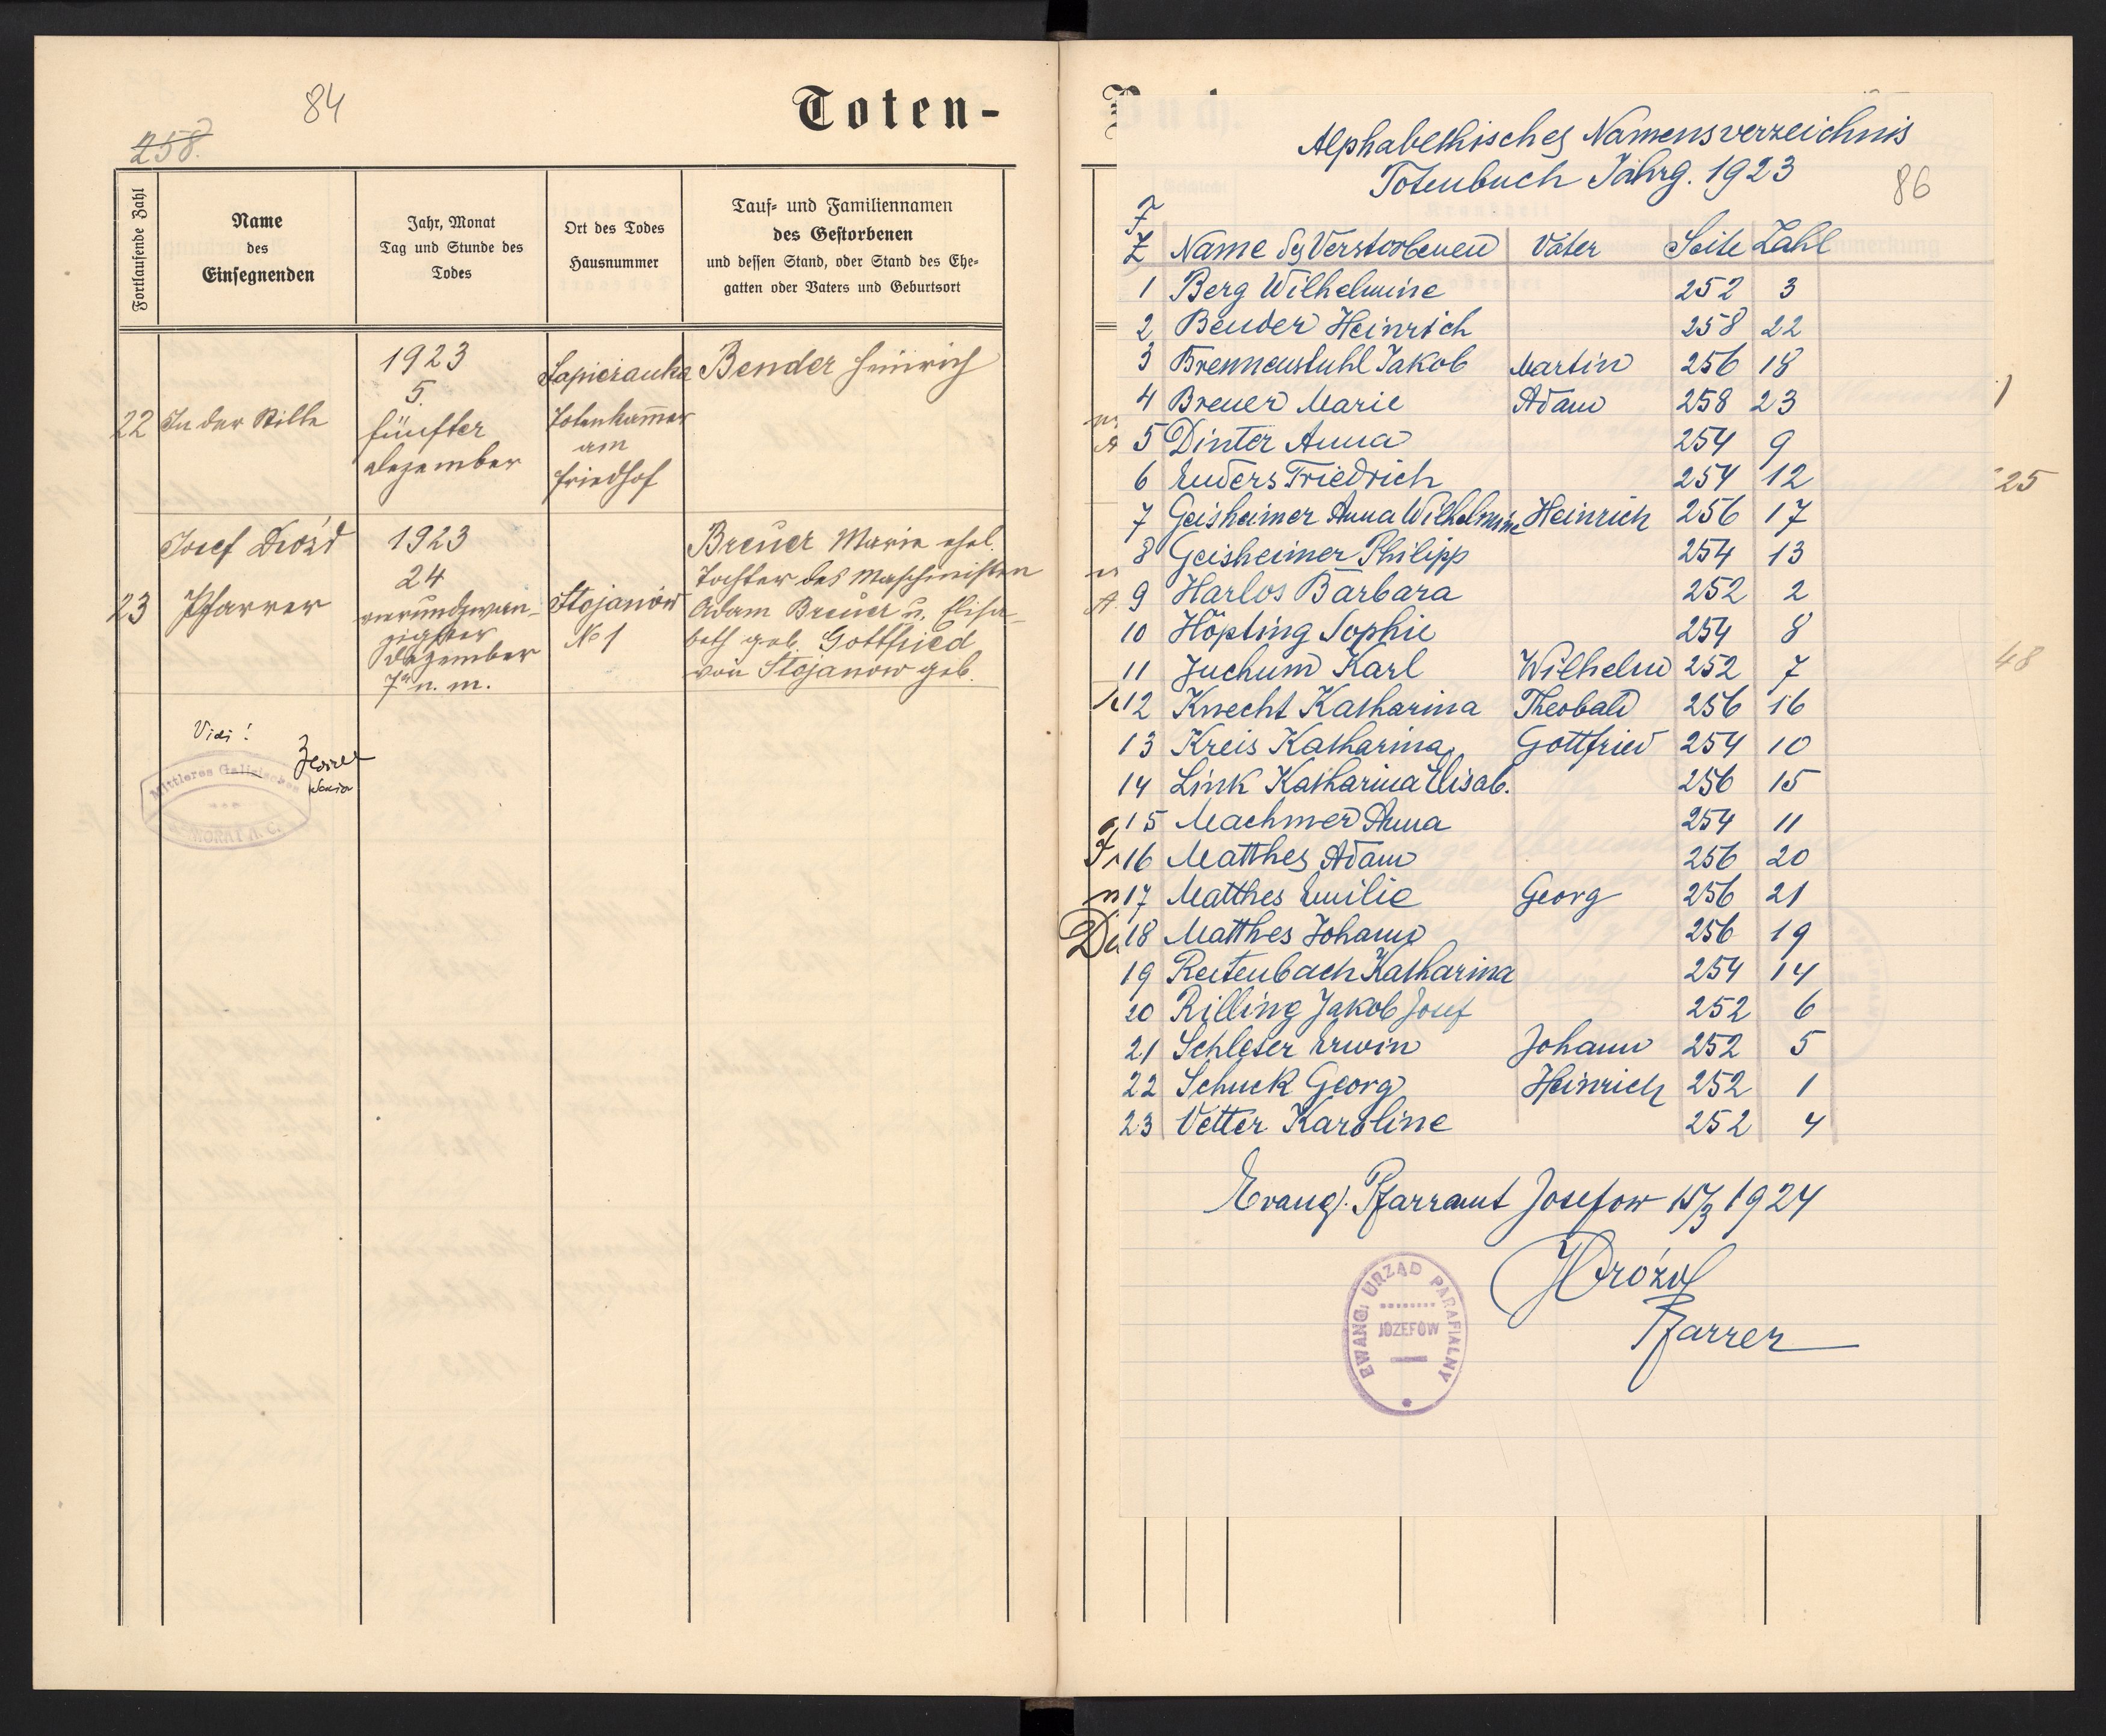 84
258.
Toten-
Fortlaufende Zahl
Name
des
Einsegnenden
Jahr, Monat
Tag und Stunde des
Todes
Ort des Todes
Hausnummer
Tauf- und Familiennamen
des Gestorbenen
und dessen Stand, oder Stand des Ehe-
gatten oder Vaters und Geburtsort
22 In der Stille
1923
5.
fünfter
Dezember
Sapieżanka
Totenkammer
am
Friedhof
Bender Heinrich
23
Josef Drózd
Pfarrer
1923
24
vierundzwan-
zigster
Dezember
7 n. m.
Stojanów
No 1
Breuer Maria ehel.
Tochter des Maschinisten
Adam Breuer u. Elisa-
beth geb. Gottfried
von Stojanow geb.
Vidi!
Senior
Mittleres Galizisches
SENIORAT A. C.
Buch.
Alphabethisches Namensverzeichnis
Totenbuch Jahrg. 1923
86
F
Z Name des Verstorbenen Vater Seite Zahl
1 Berg Wilhelmine 252 3
2 Bender Heinrich 258 22
3 Brennenstuhl Jakob Martin 256 18
4 Breuer Marie Adam 258 23
5 Dinter Anna 254 9
6 Enders Friedrich 254 12
7 Geisheimer Anna Wilhelmine Heinrich 256 17
8 Geisheimer Philipp 254 13
9 Harlos Barbara 252 2
10 Höpting Sophie 254 8
11 Juchum Karl Wilhelm 252 7
12 Knecht Katharina Theobald 256 16
13 Kreis Katharina Gottfried 254 10
14 Link Katharina Elisab. 256 15
15 Machmer Anna 254 11
16 Matthes Adam 256 20
17 Matthes Emilie Georg 256 21
18 Matthes Johann 256 19
19 Reitenbach Katharina 254 14
20 Rilling Jakob Josef 252 6
21 Schleser Erwin Johann 252 5
22 Schuck Georg Heinrich 252 1
23 Vetter Karoline 252 4
25
48
Evang. Pfarramt Josefow 15/3 1924
JDrózd
Pfarrer
EWANG. URZĄD PARAFIALNY
JÓZEFÓW